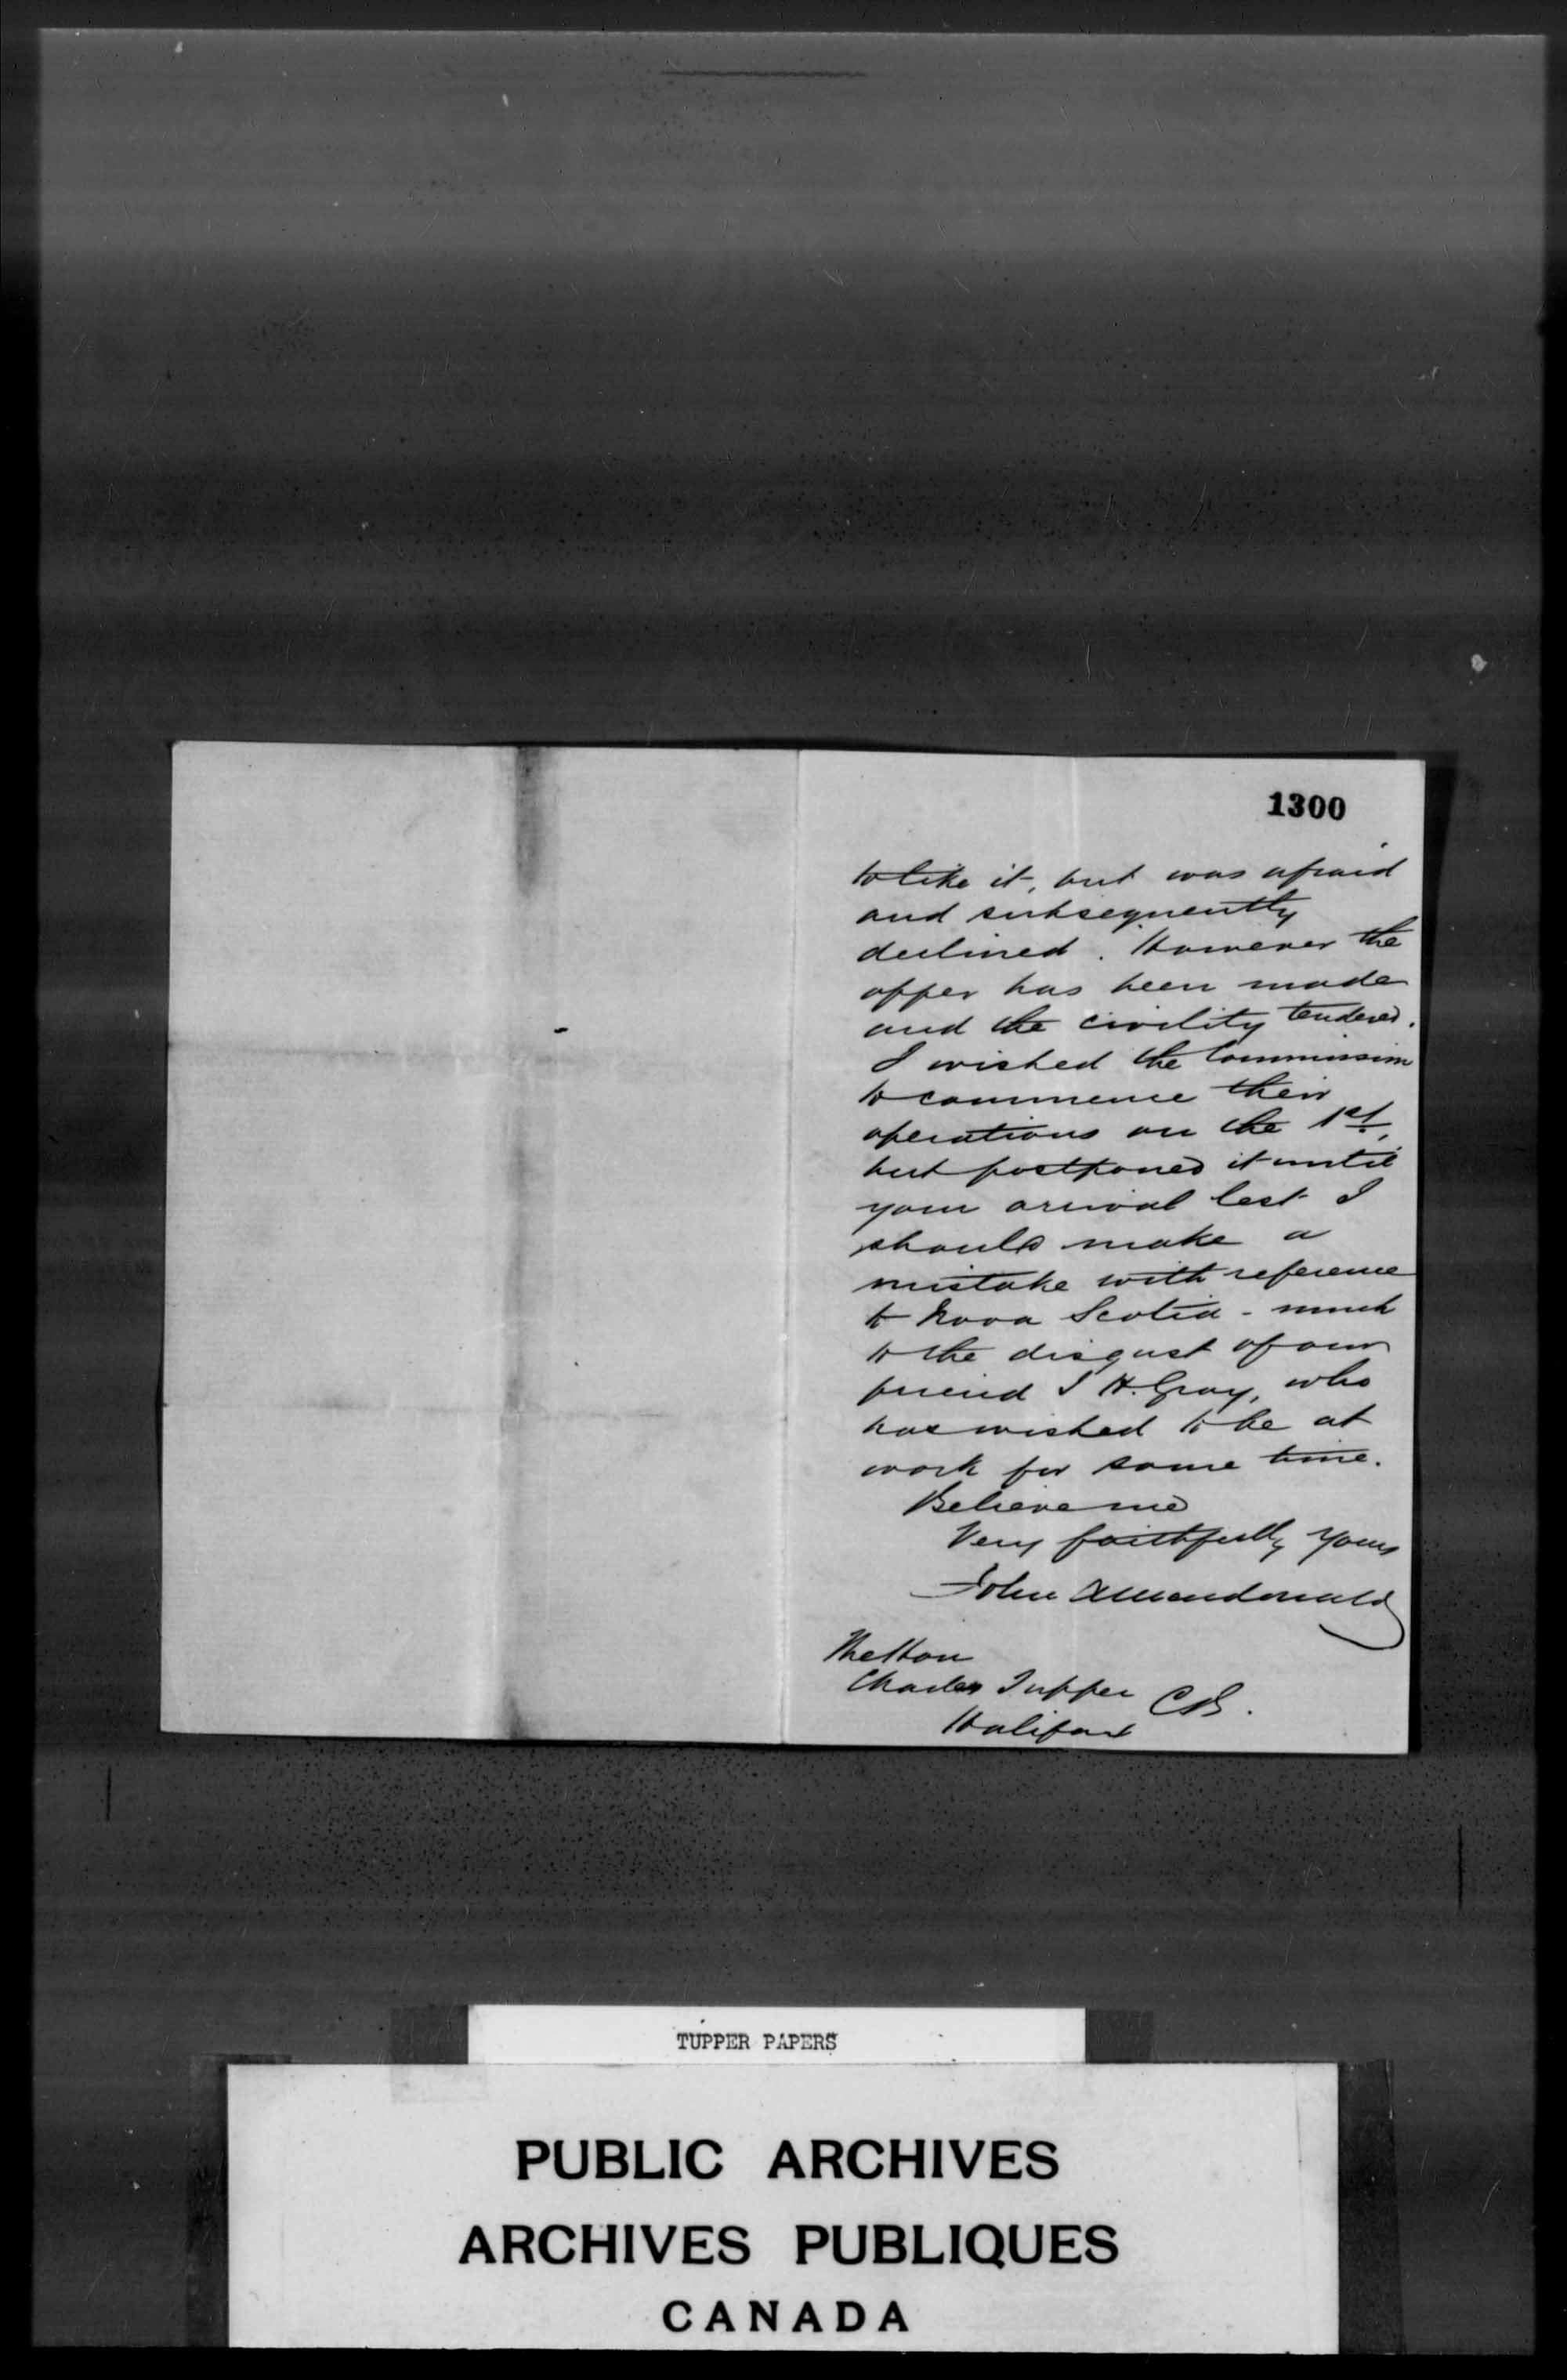 1300
to like it, but was afraid
and subsequently
declined. However the
offer has been made
and the civility tendered.
I wished the Commission
to commence their
operations on the 1st,
but postponed it until
your arrival lest I
should make a
mistake with reference
to Nova Scotia - much
to the disgust of our
friend J H. Gray, who
has wished to be at
work for some time.
Believe me
Very faithfully yours
John A Macdonald
The Hon
Charles Tupper CB.
Halifax
TUPPER PAPERS
PUBLIC ARCHIVES
ARCHIVES PUBLIQUES
CANADA